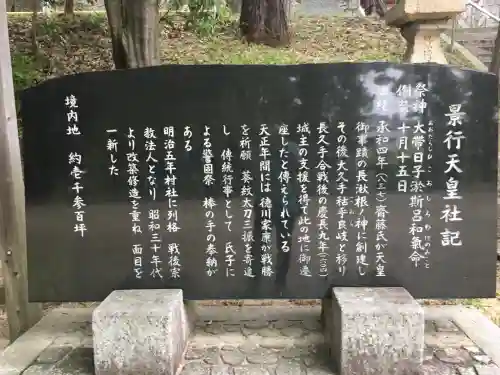 景行天皇社記
祭神 大帯日子淤斯呂和氣命
おおたらしひこおしろわけのみこと
例祭 十月十五日
承和四年(八三七)齋藤氏が天皇
御事蹟の長湫根ノ神に創建し
その後大久手砧手良岐と移り
長久手合戦後の慶長九年(一六〇四)
城主の支援を得て此の地に御遷
座したと伝えられている
天正年間には徳川家康が戦勝
を祈願 葵紋太刀三振を寄進
し 傳統行事として 氏子に
よる警固祭 棒の手の奉納が
ある
明治五年村社に列格 戦後宗
教法人となり 昭和三十年代
より改築修造を重ね 面目を
一新した
境内地 約壱千参百坪